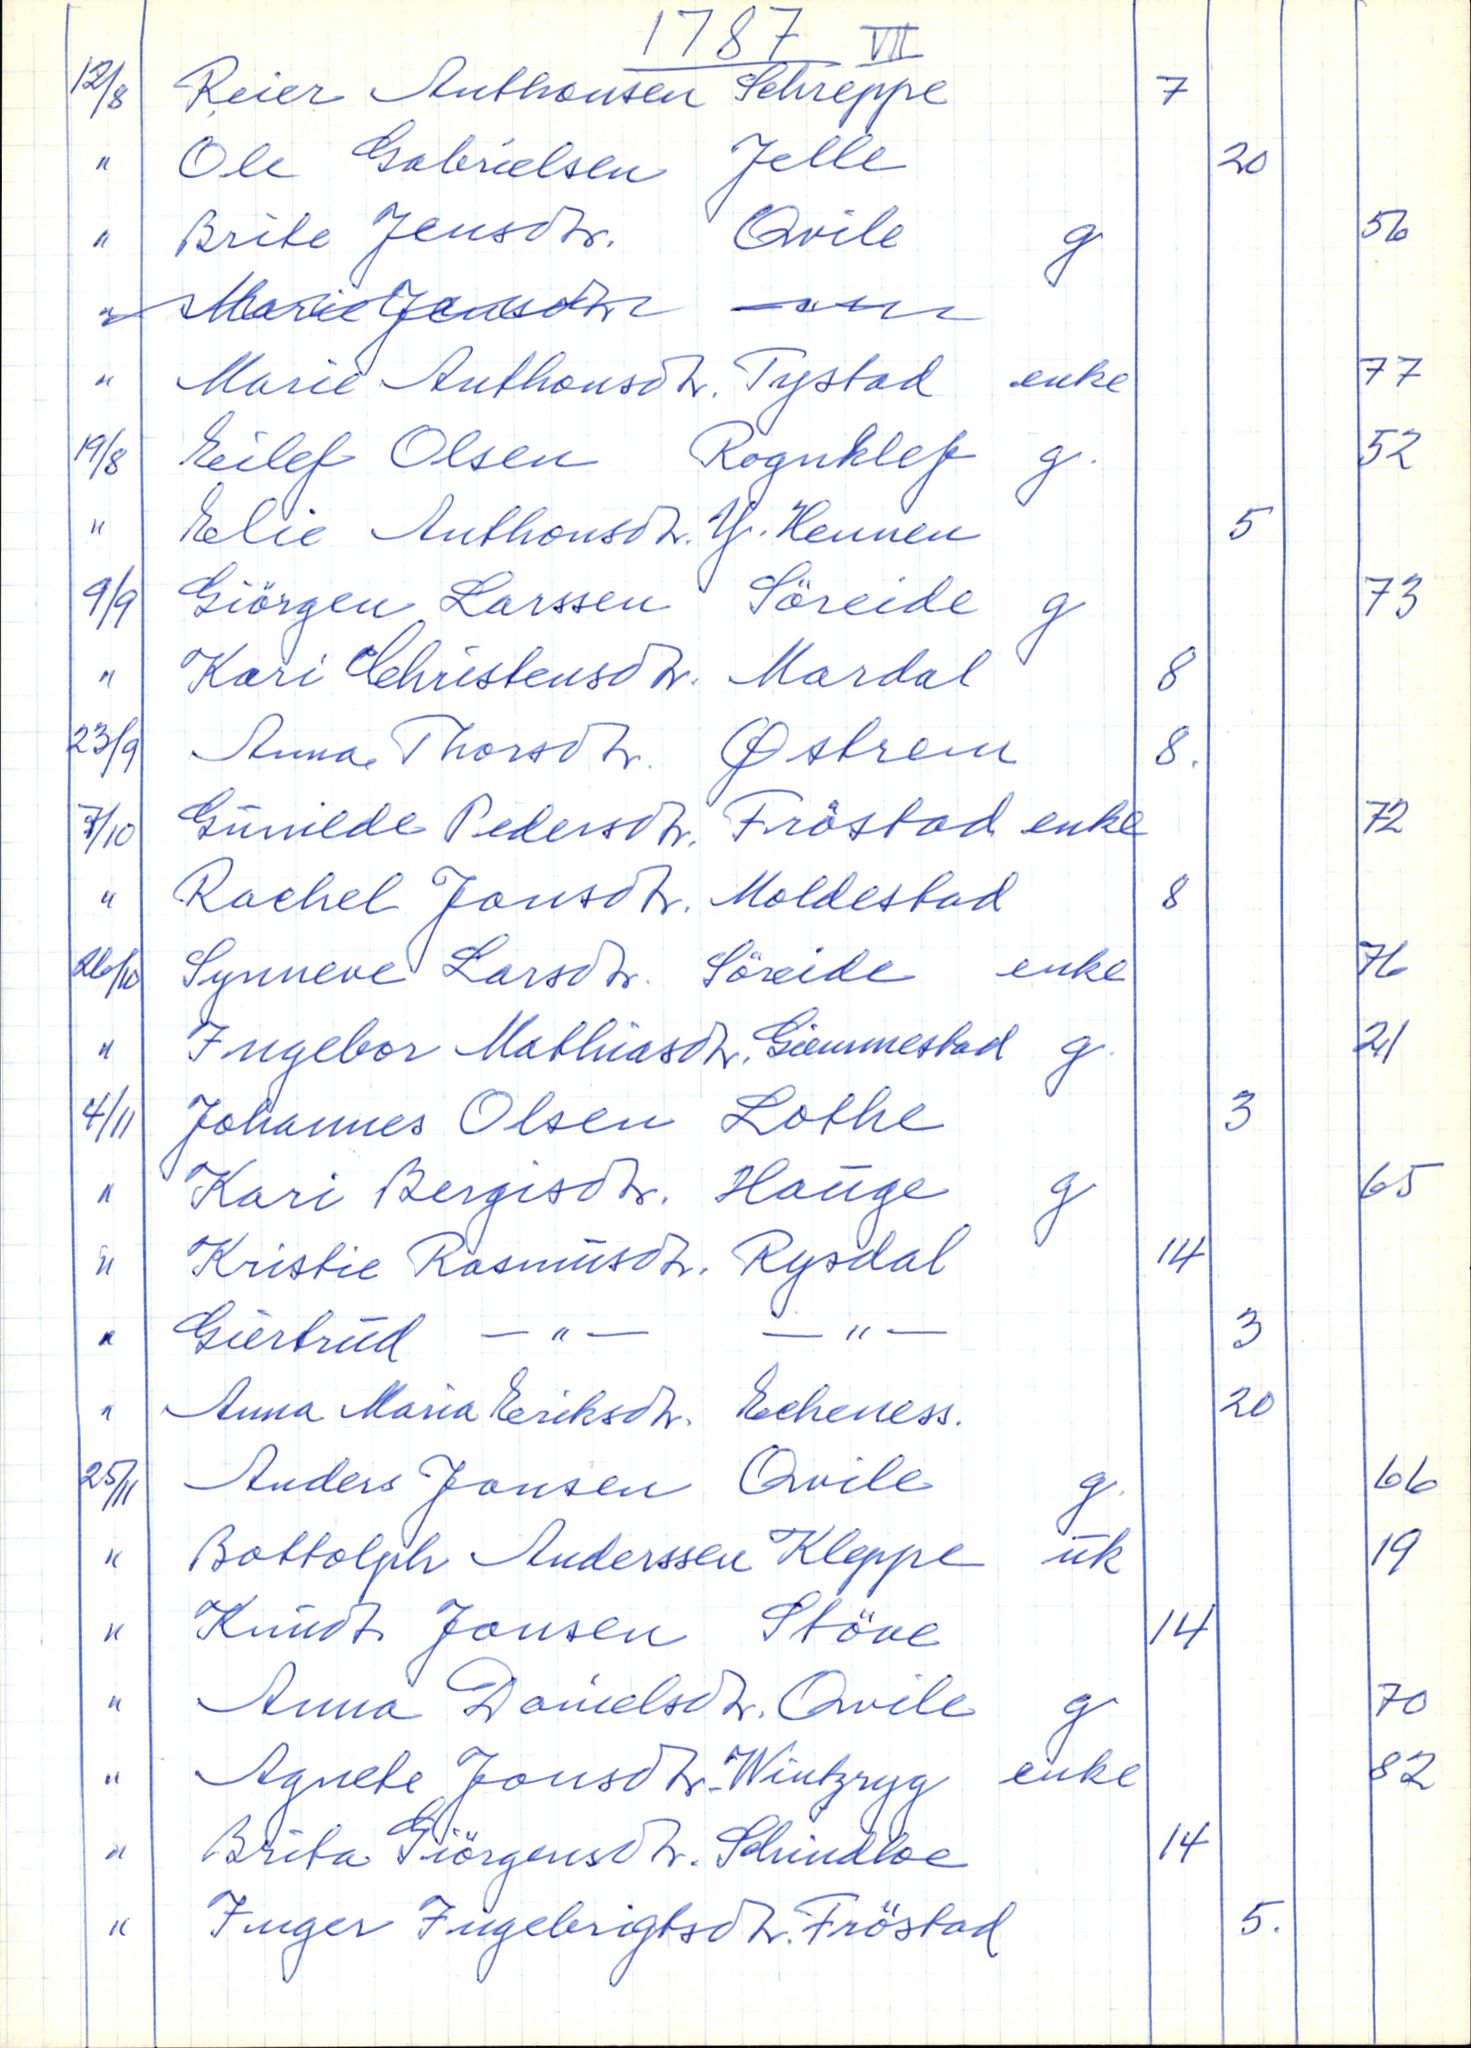 1787 VII
12/8 Reier Anthonsen Schreppe 7
" Ole Gabrielsen Jelle 20
" Brite Jensdtr. Qvile g 56
" Marie Jensdtr — " —
" Marie Anthonsdtr. Tystad enke 77
19/8 Eilef Olsen Rognklef g. 52
" Elie Anthonsdtr. Y. Hennen 5
9/9 Giörgen Larssen Söreide g 73
" Kari Christensdtr. Mardal 8
23/9 Anna Thorsdtr. Østrem 8.
7/10 Gunilde Pedersdtr. Fröstad enke 72
" Rachel Jonsdtr. Moldestad 8
26/10 Synneve Larsdtr. Söreide enke 76
" Ingebor Mathiasdtr. Giemmestad g. 21
4/11 Johannes Olsen Lothe 3
" Kari Bergisdtr. Hauge g 65
" Kristie Rasmusdtr. Rysdal 14
" Giertrud — " — — " — 3
" Anna Maria Eriksdtr. Echeness. 20
25/11 Anders Jonsen Qvile g. 66
" Bottolph Anderssen Kleppe uk 19
" Knudt Jonsen Støve 14
" Anna Danielsdtr. Qvile g 70
" Agnete Jonsdtr. Wintzryg enke 82
" Brita Giörgensdtr. Schindloe 14
" Inger Ingebrigtsdtr. Fröstad 5.